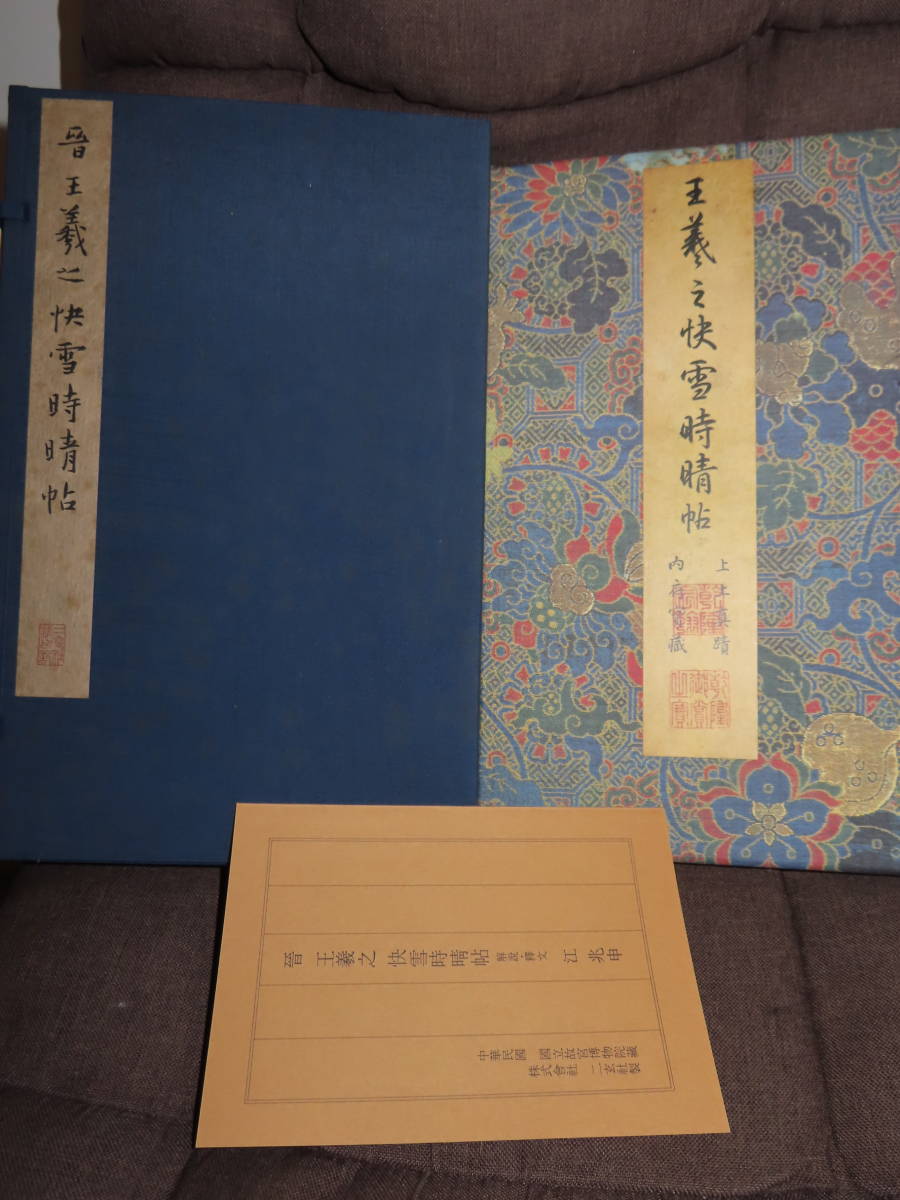 晉王羲之快雪時晴帖
王羲之快雪時晴帖
上上真蹟
內府寶藏
晉 王羲之 快雪時晴帖 解説・釋文 江兆申
中華民國 國立故宮博物院藏
株式會社 二玄社製